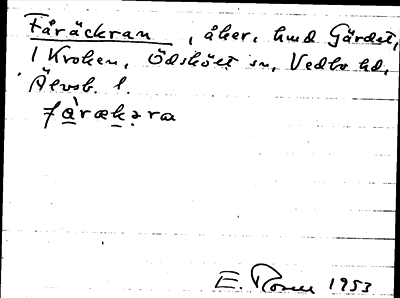 Fåräckran, åker, hmd Gärdet,
1 Kroken, Ödskölt sn, Vedbo hd,
Älvsb. l.
fàrækəra
E. Rosen 1953